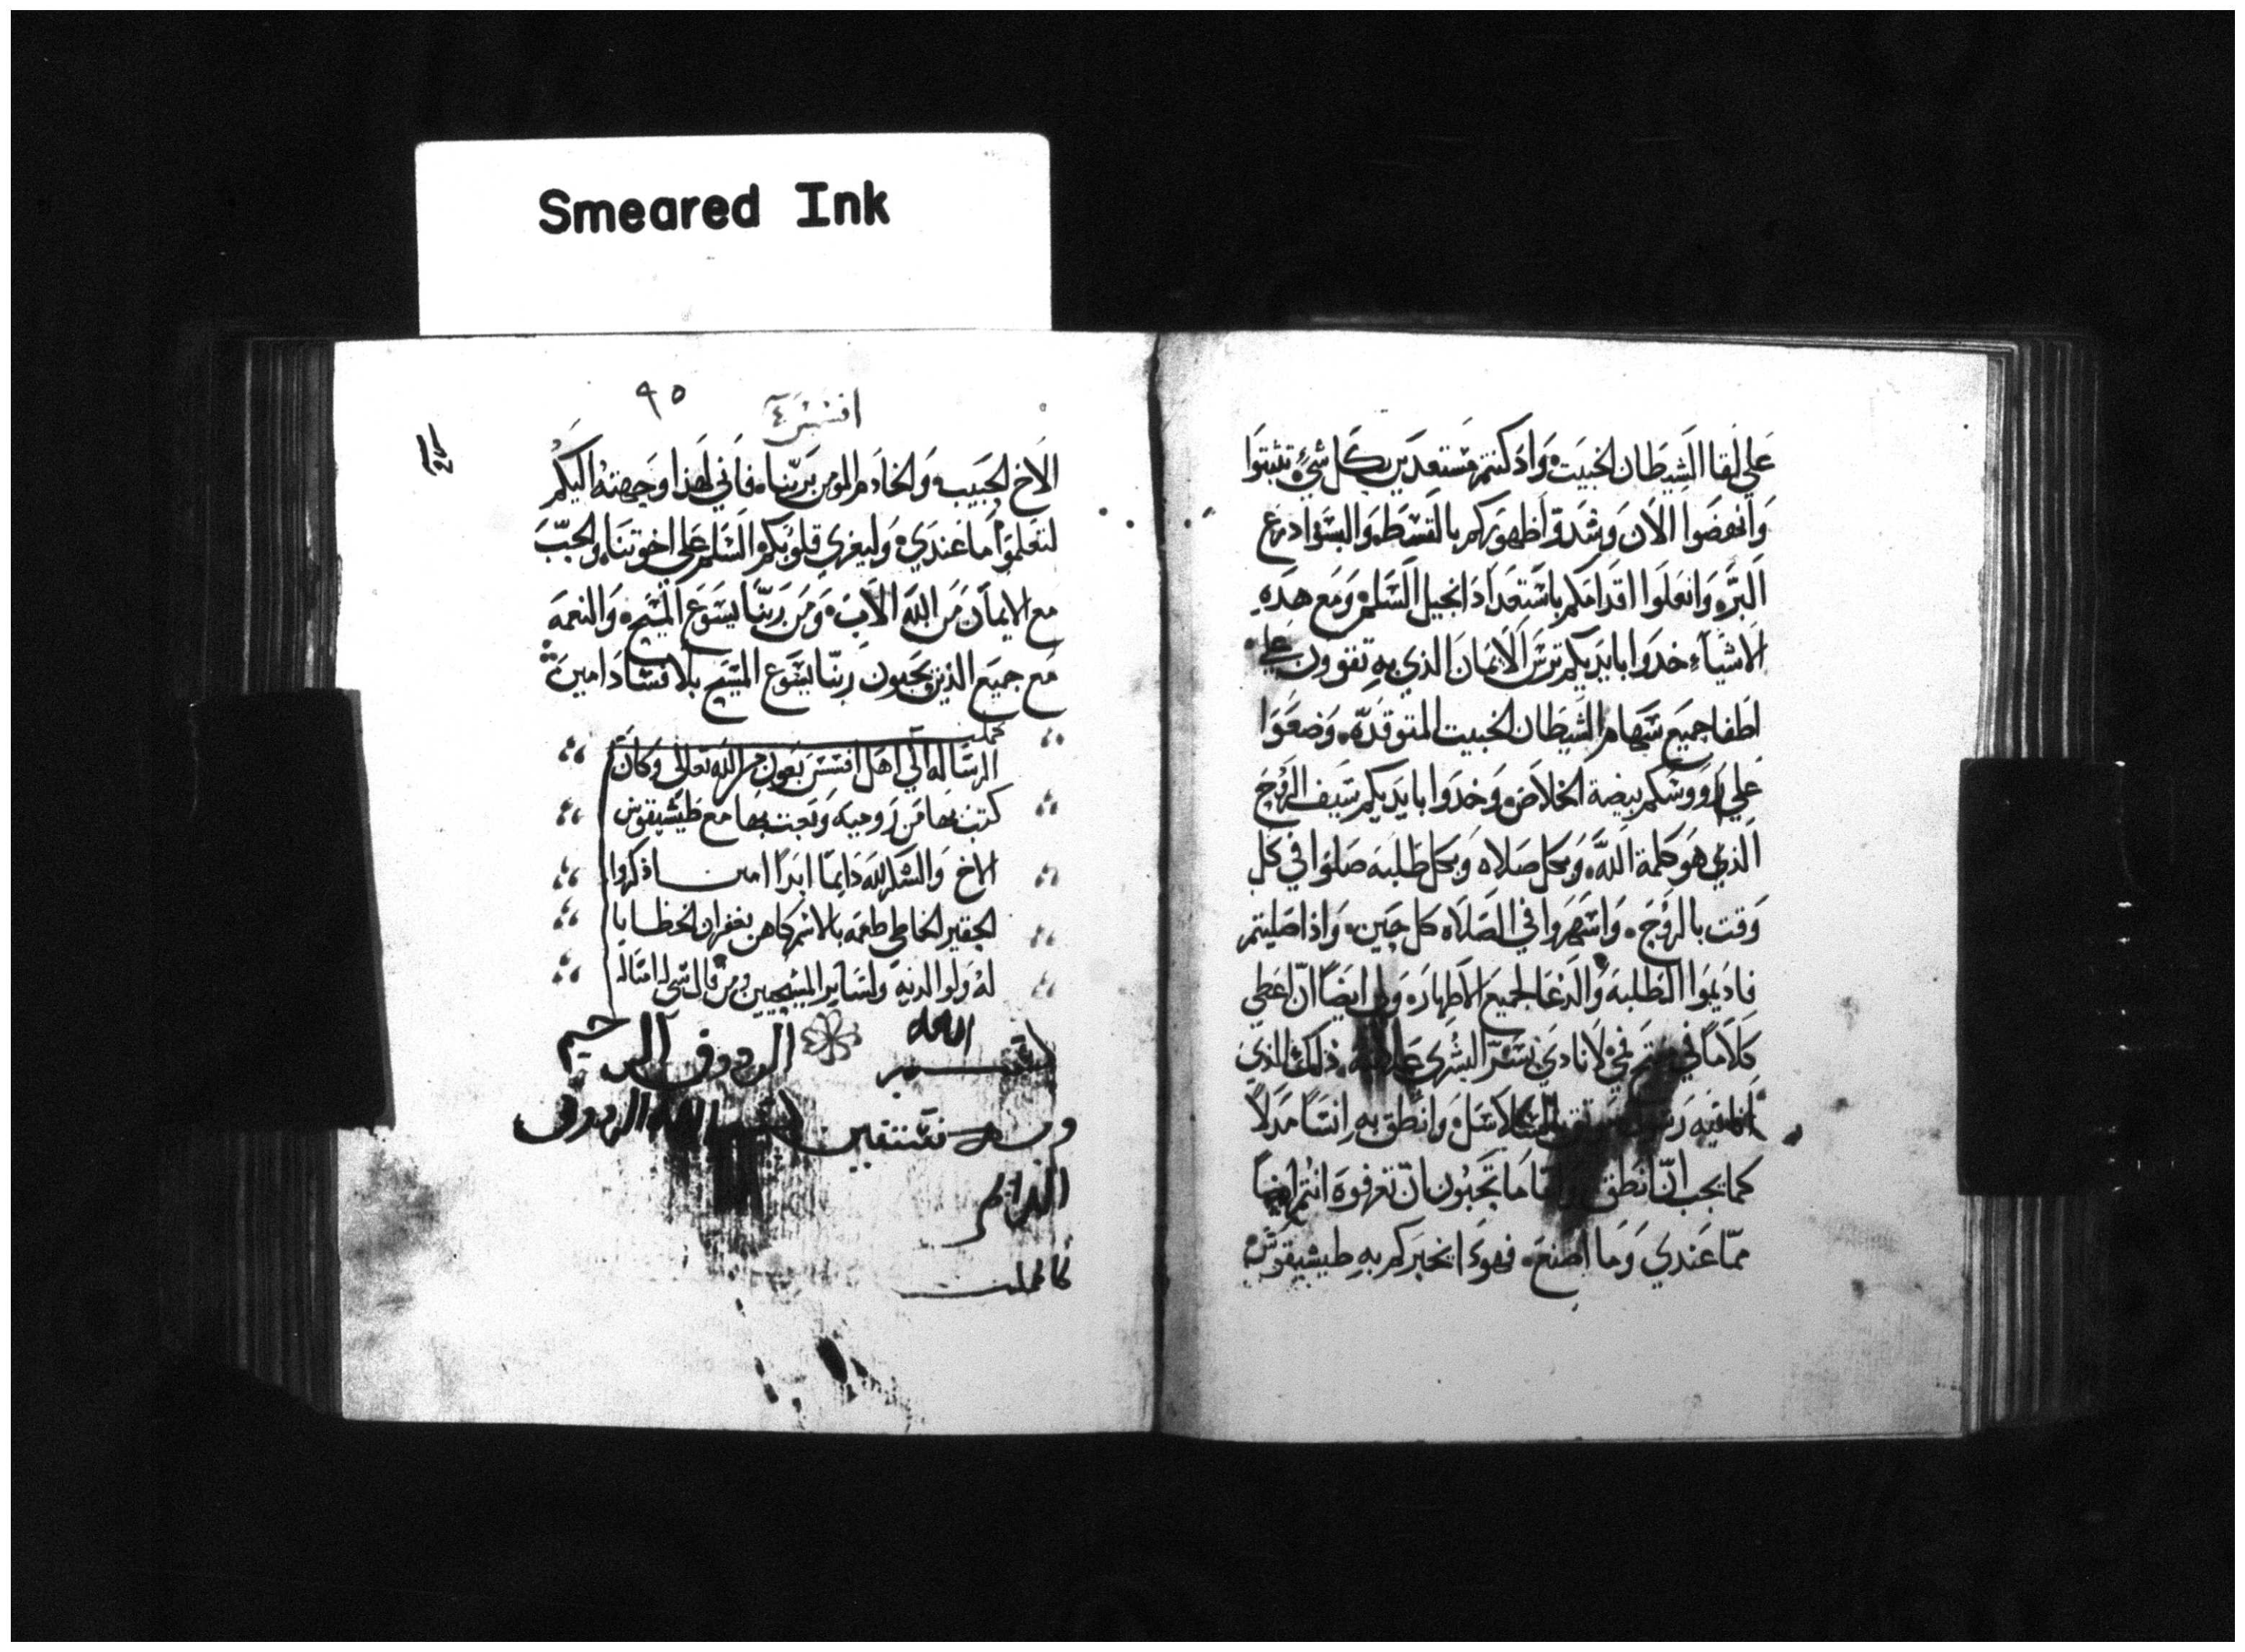 Smeared Ink
علي لقا الشيطان الخبيت واد كنتم مستعدين بكل شيء تثبتوا
وانهضوا الان وشدوا اظهوركم بالقسط والبسوا درع
البر وانعلوا اقدامكم باستعداد انجيل السلم ومع هده
الاشياء خدوا بايديكم ترس الايمان الذي به تقوون علي
اطفا جميع سهام الشيطان الخبيت المتوقده وضعوا
علي رووسكم بيضة الخلاص وخدوا بايديكم سيف الروح
الذي هو كلمة الله وبكل صلاه وبكل طلبه صلوا في كل
وقت بالروح واسهروا في الصلاه كل حين واذا صليتم
فاديموا الطلبه والدعا لجميع الاطهار ولي ايضا ان اعطي
كلاما في لانادي بسر البشري علانيه ذلك الذي
وانطق به انسا مدلا
كما يجب ان انطق ما تحبون ان تعرفوه انتم ايضا
مما عندي وما اصنع فهوذا يخبركم به طيشيقوس
٩٥
افسس ٤
الاخ الحبيب والخادم المومن بربنا فاني لهذا وجهته اليكم
لتعلموا ما عندي وليعزي قلوبكم السلم علي اخوتنا والحب
مع الايمان من الله الاب ومن ربنا يسوع المسيح والنعمه
مع جميع الذين يحبون ربنا يسوع المسيح بلا فساد امين
كملت
الرسالة الي اهل افسس بعون الله تعالى وكان
كتب بها من روميه وبعث بها مع طيشيقوس
الاخ والشكر لله دايما ابدا امين اذكروا
الحقير الخاطي طعمه بالاسم كاهن بغفران الخطايا
له ولوالديه ولساير المسيحيين ومن قال شي له امتاله
بسم الله الرووف الرحيم
وبه نستعين بسم الله الرووف
الدايم
كملت